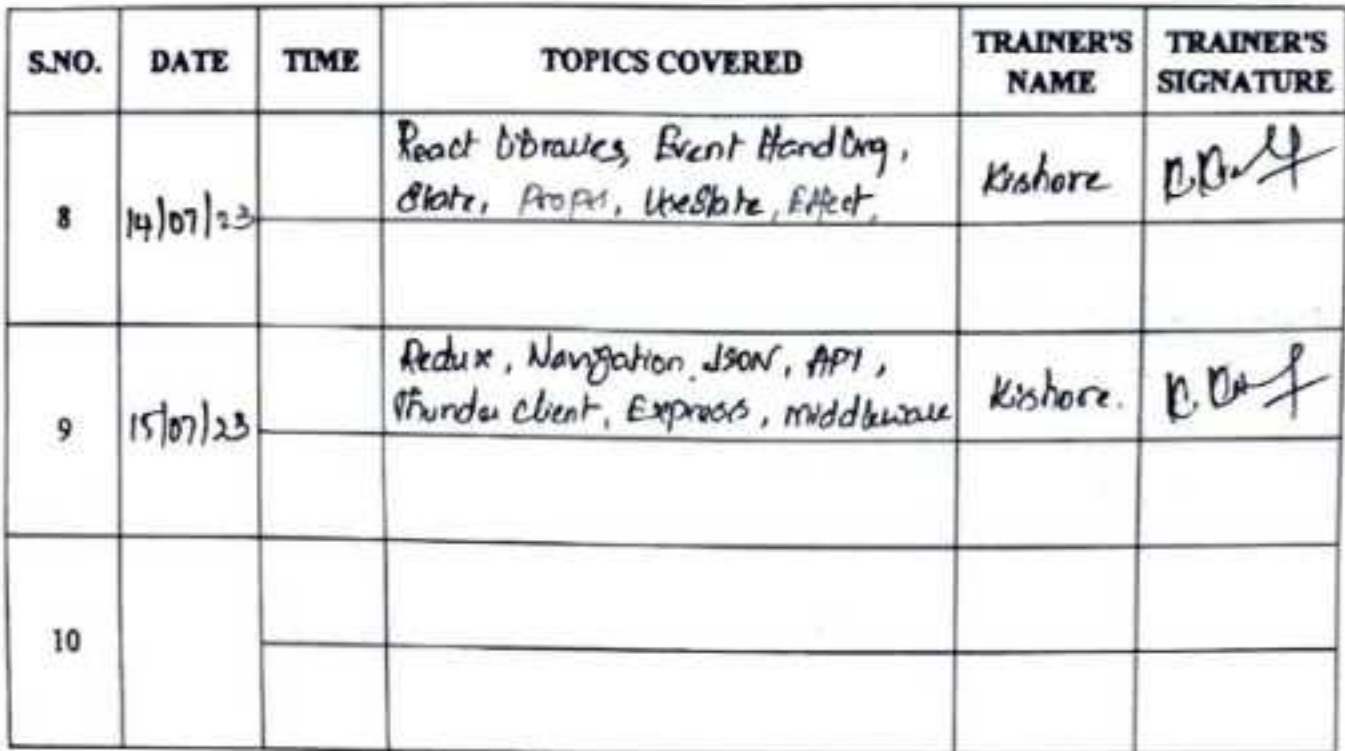 S.NO. DATE TIME TOPICS COVERED TRAINER'S NAME TRAINER'S SIGNATURE
React Libraries, Event Handling,
8 14/07/23 State, Props, UseState, Effect, Kishore
Redux, Navigation JSON, API,
9 15/07/23 Thunder client, Express, middleware Kishore.
10